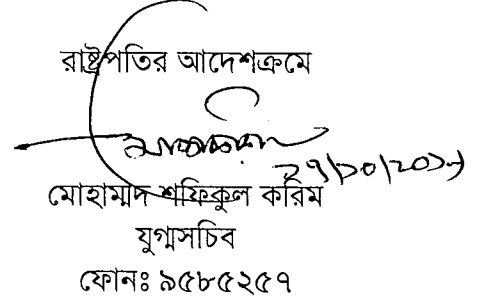 রাষ্ট্রপতির আদেশক্রমে
মোহাম্মদ শফিকুল করিম
যুগ্মসচিব
ফোনঃ ৯৫৮৫২৫৭